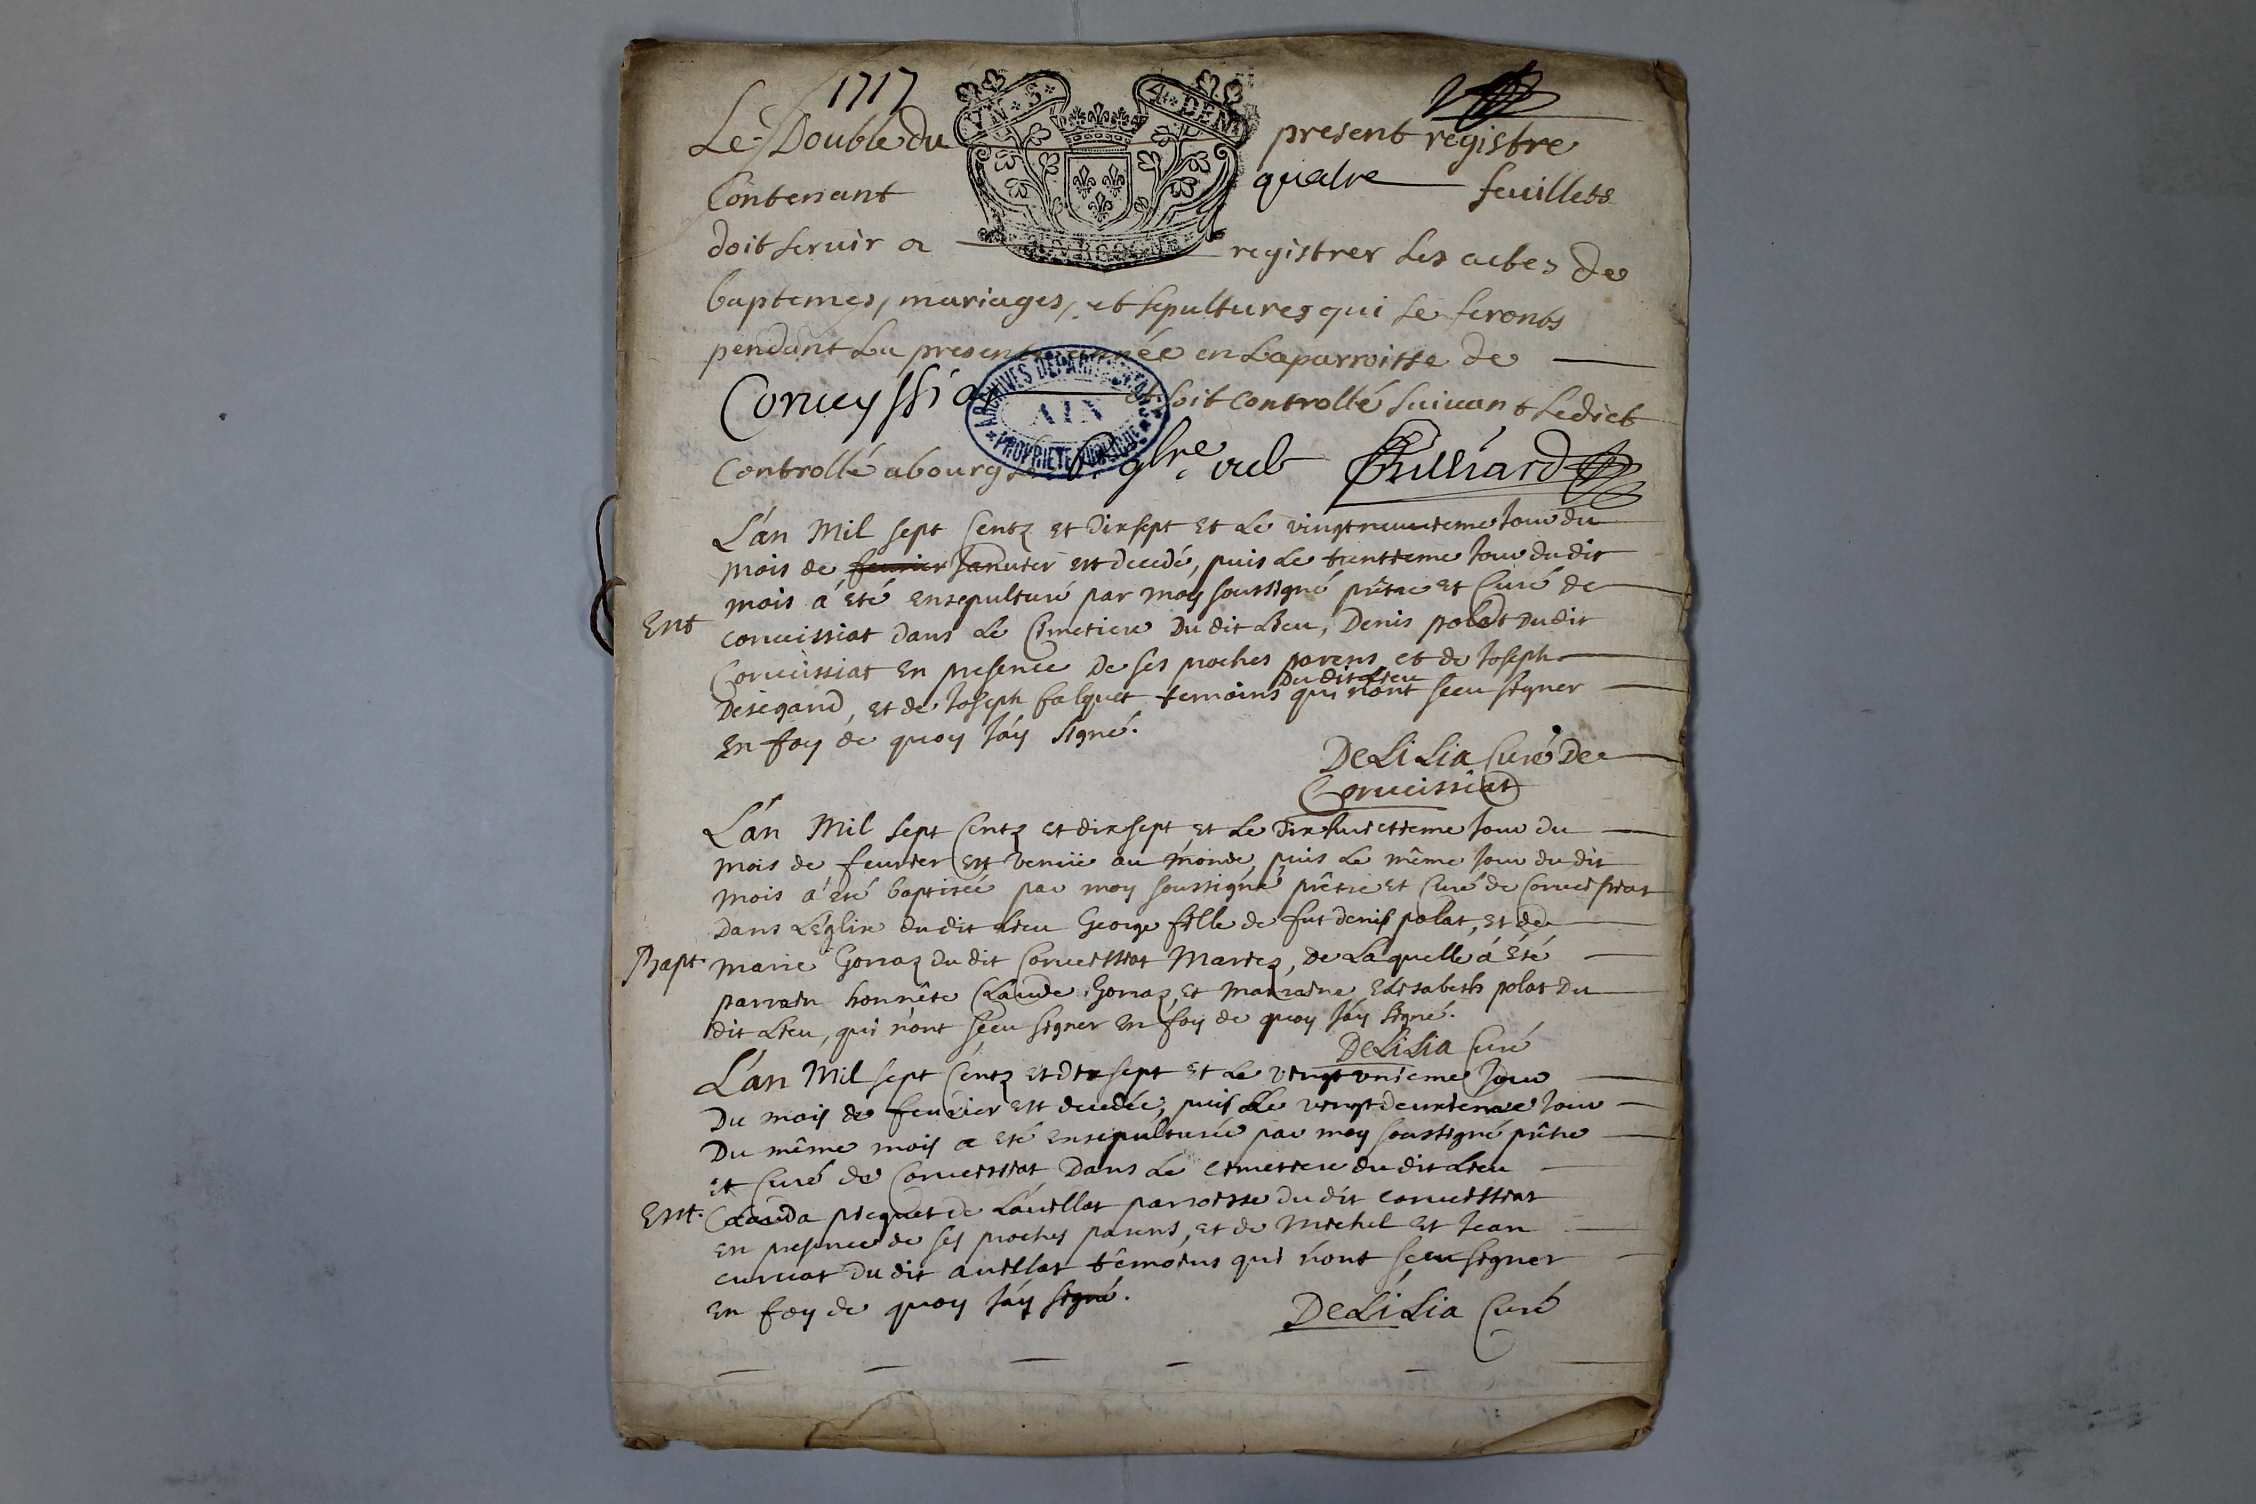 1717
VN · S · 4 · DEN
Le Double du present registre
Contenant quatre feuillets
doit servir a registrer les actes de
baptemes, mariages, et sepultures qui se feronts
pendant La presente année en La parroisse de
Corveyssia et soit controllé suivant Ledict
ARCHIVES DEPARTEMENTALES
AIN
PROPRIETE PUBLIQUE
Controllé a bourg
L'an Mil sept Centz et dixsept et Le vingtneuvieme Jour du
mois de fevrier Janvier est decedé, puis Le trentieme Jour du dit
mois á eté ensepulturé par moy soussigné prêtre et Curé de
Ent corveissiat dans Le Cimetiere Du dit Lieu, Denis polat Dudit
Corveissiat en presence De ses proches parens et de Joseph
Du dit Lieu
Desegand, et de Joseph falquet temoins qui n'ont sceu signer
en foy de quoy J'ay signé.
DeLiLia Curé De
Corveissiat
L'an Mil sept Centz et dixsept et Le Dixhuictieme Jour du
mois de fevrier est venüe au monde, puis Le même Jour du dit
mois á eté baptisée par moy soussigné prêtre et Curé de Corveissiat
dans L'Eglise du dit Lieu George fille de fut denis polat, et de
Bapt. marie Gonaz du dit Corveissiat Mariez, de Laquelle á été
parrain honnête Claude Gonaz, et marraine Elisabeth polat Du
dit Lieu, qui n'ont sceu signer en foy de quoy J'ay signé.
DeLiLia Curé
L'an Mil sept Centz et dixsept et Le vingt unieme Jour
Du mois de fevrier est decedée, puis Le vingtdeuxieme Jour
Du même mois a eté ensepulturée par moy soussigné prêtre
et Curé de Corveissiat Dans Le cimetiere du dit Lieu
Ent. Clauda picquet de L'avillat parroisse du dit corveissiat
en presence de ses proches parens, et de Michel et Jean
curvat du dit avillat têmoins qui n'ont sceu signer
en foy de quoy J'ay signé.
DeLiLia Curé